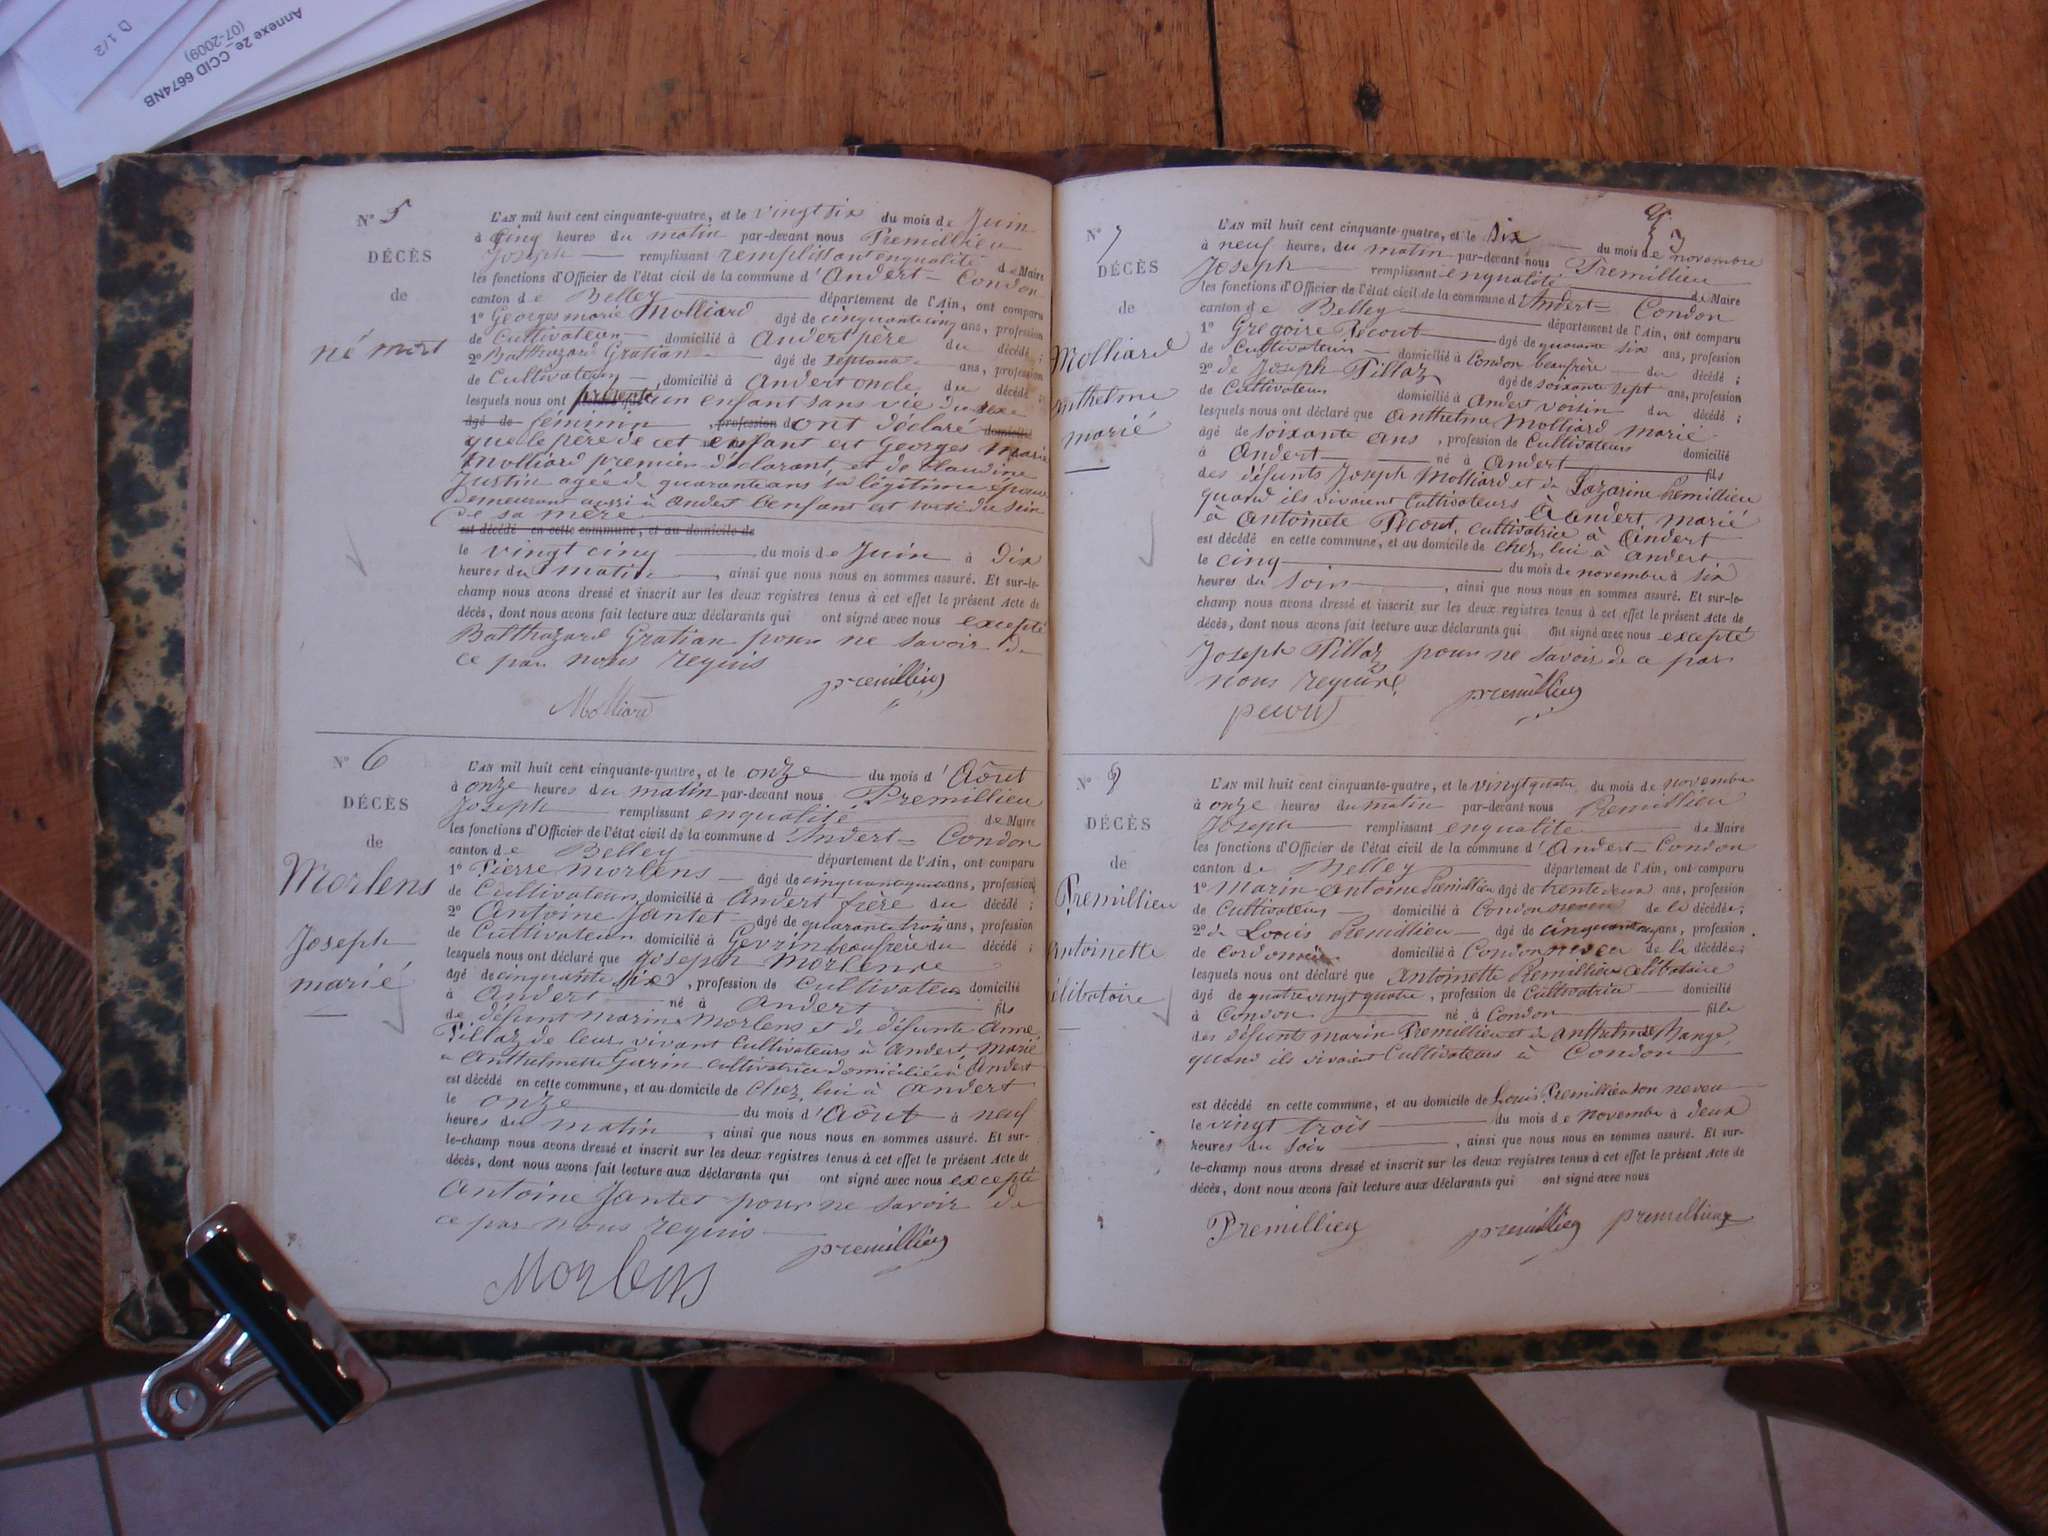 Annexe 2e_CCID 6674NB
(07-2009)
1/2
N° 5
DÉCÈS
de
né mort
L'AN mil huit cent cinquante-quatre, et le vingt six du mois de Juin
à cinq heures du matin par-devant nous Premillieu
Joseph remplissant remplissant enqualité de Maire
les fonctions d'Officier de l'état civil de la commune d'Andert-Condon
canton de Belley département de l'Ain, ont comparu
1° Georges marie Molliard âgé de cinquante cinq ans, profession
de Cultivateur domicilié à Andert père du décédé;
2° Balthazard Gratian âgé de ans, profession
de Cultivateur, domicilié à Andert oncle du décédé;
lesquels nous ont présenté un enfant sans vie du sexe
âgé de féminin, profession d ont déclaré domicilié
que le père de cet enfant est Georges Marie
Molliard premier déclarant, et de Claudine
Justin agée de quarante ans sa légitime épouse
demeurant aussi à Andert L'enfant est sorti du sein
de sa mère
est décédé en cette commune, et au domicile de
le vingt cinq du mois de Juin à Dix
heures du matin, ainsi que nous nous en sommes assuré. Et sur-le-
champ nous avons dressé et inscrit sur les deux registres tenus à cet effet le présent Acte de
décès, dont nous avons fait lecture aux déclarants qui ont signé avec nous excepté
Balthazard Gratian pour ne savoir de
ce par nous requis
Molliard premillieu
N° 6
DÉCÈS
de
Morlens
Joseph
marié
L'AN mil huit cent cinquante-quatre, et le onze du mois d'Août
à onze heures du matin par-devant nous Premillieu
Joseph remplissant enqualité de Maire
les fonctions d'Officier de l'état civil de la commune d'Andert-Condon
canton de Belley département de l'Ain, ont comparu
1° Pierre Morlens âgé de ans, profession
de Cultivateur domicilié à Andert frère du décédé;
2° Antoine Jantet âgé de quarante trois ans, profession
de Cultivateur domicilié à Gevrin beaufrère du décédé;
lesquels nous ont déclaré que Joseph Morlens
âgé de cinquante six, profession de Cultivateur domicilié
à Andert né à Andert fils
de défunt Marin Morlens et de défunte Anne
Pillaz de leur vivant Cultivateurs à Andert Marié
à Anthelmette Garin cultivatrice domiciliée à Andert
est décédé en cette commune, et au domicile de chez lui à Andert
le onze du mois d'Août à neuf
heures du matin, ainsi que nous nous en sommes assuré. Et sur-
le-champ nous avons dressé et inscrit sur les deux registres tenus à cet effet le présent Acte de
décès, dont nous avons fait lecture aux déclarants qui ont signé avec nous excepté
Antoine Jantet pour ne savoir de
ce par nous requis
premillieu
Morlens
N° 7
DÉCÈS
de
Molliard
anthelme
marié
L'AN mil huit cent cinquante-quatre, et le six du mois de novembre
à neuf heure, du matin par-devant nous Premillieu
Joseph remplissant enqualité de Maire
les fonctions d'Officier de l'état civil de la commune d'Andert-Condon
canton de Belley département de l'Ain, ont comparu
1° Gregoire Pecout âgé de quarante six ans, profession
de Cultivateur domicilié à Condon beaufrère du décédé;
2° de Joseph Pillaz âgé de soixante sept ans, profession
de Cultivateur domicilié à Andert voisin du décédé;
lesquels nous ont déclaré que Anthelme Molliard marié
âgé de soixante ans, profession de Cultivateur domicilié
à Andert né à Andert fils
des défunts Joseph Molliard et de Lazarine Premillieu
quand ils vivaient Cultivateurs à Andert marié
à Antoinete Pecout, cultivatrice à Andert
est décédé en cette commune, et au domicile de chez lui à Andert
le cinq du mois de novembre à six
heures du soir, ainsi que nous nous en sommes assuré. Et sur-le-
champ nous avons dressé et inscrit sur les deux registres tenus à cet effet le présent Acte de
décès, dont nous avons fait lecture aux déclarants qui ont signé avec nous excepté
Joseph Pillaz pour ne savoir de ce par
nous requis
pecout premillieu
N° 8
DÉCÈS
de
Premillieu
antoinette
célibataire
L'AN mil huit cent cinquante-quatre, et le vingt quatre du mois de novembre
à onze heures du matin par-devant nous Premillieu
Joseph remplissant enqualité de Maire
les fonctions d'Officier de l'état civil de la commune d'Andert-Condon
canton de Belley département de l'Ain, ont comparu
1° Marin Antoine Premillieu âgé de trente deux ans, profession
de Cultivateur domicilié à Condon neveu de la décédée;
2° de Louis Premillieu âgé de ans, profession
de cordonnier domicilié à Condon neveu de la décédée;
lesquels nous ont déclaré que Antoinette Premillieu célibataire
âgé de quatre vingt quatre, profession de Cultivatrice domicilié
à Condon né à Condon fille
des défunts marin Premillieu et de Anthelmde
quand ils vivaient Cultivateurs à Condon
est décédé en cette commune, et au domicile de Louis Premillieu son neveu
le vingt trois du mois de novembre à deux
heures du soir, ainsi que nous nous en sommes assuré. Et sur-
le-champ nous avons dressé et inscrit sur les deux registres tenus à cet effet le présent Acte de
décès, dont nous avons fait lecture aux déclarants qui ont signé avec nous
Premillieu premillieu premillieu